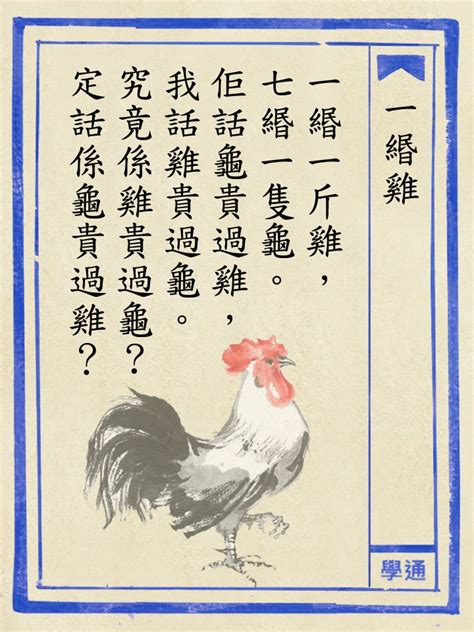 一緡雞
一緡一斤雞，
七緡一隻龜。
佢話龜貴過雞，
我話雞貴過龜。
究竟係雞貴過龜？
定話係龜貴過雞？
學通